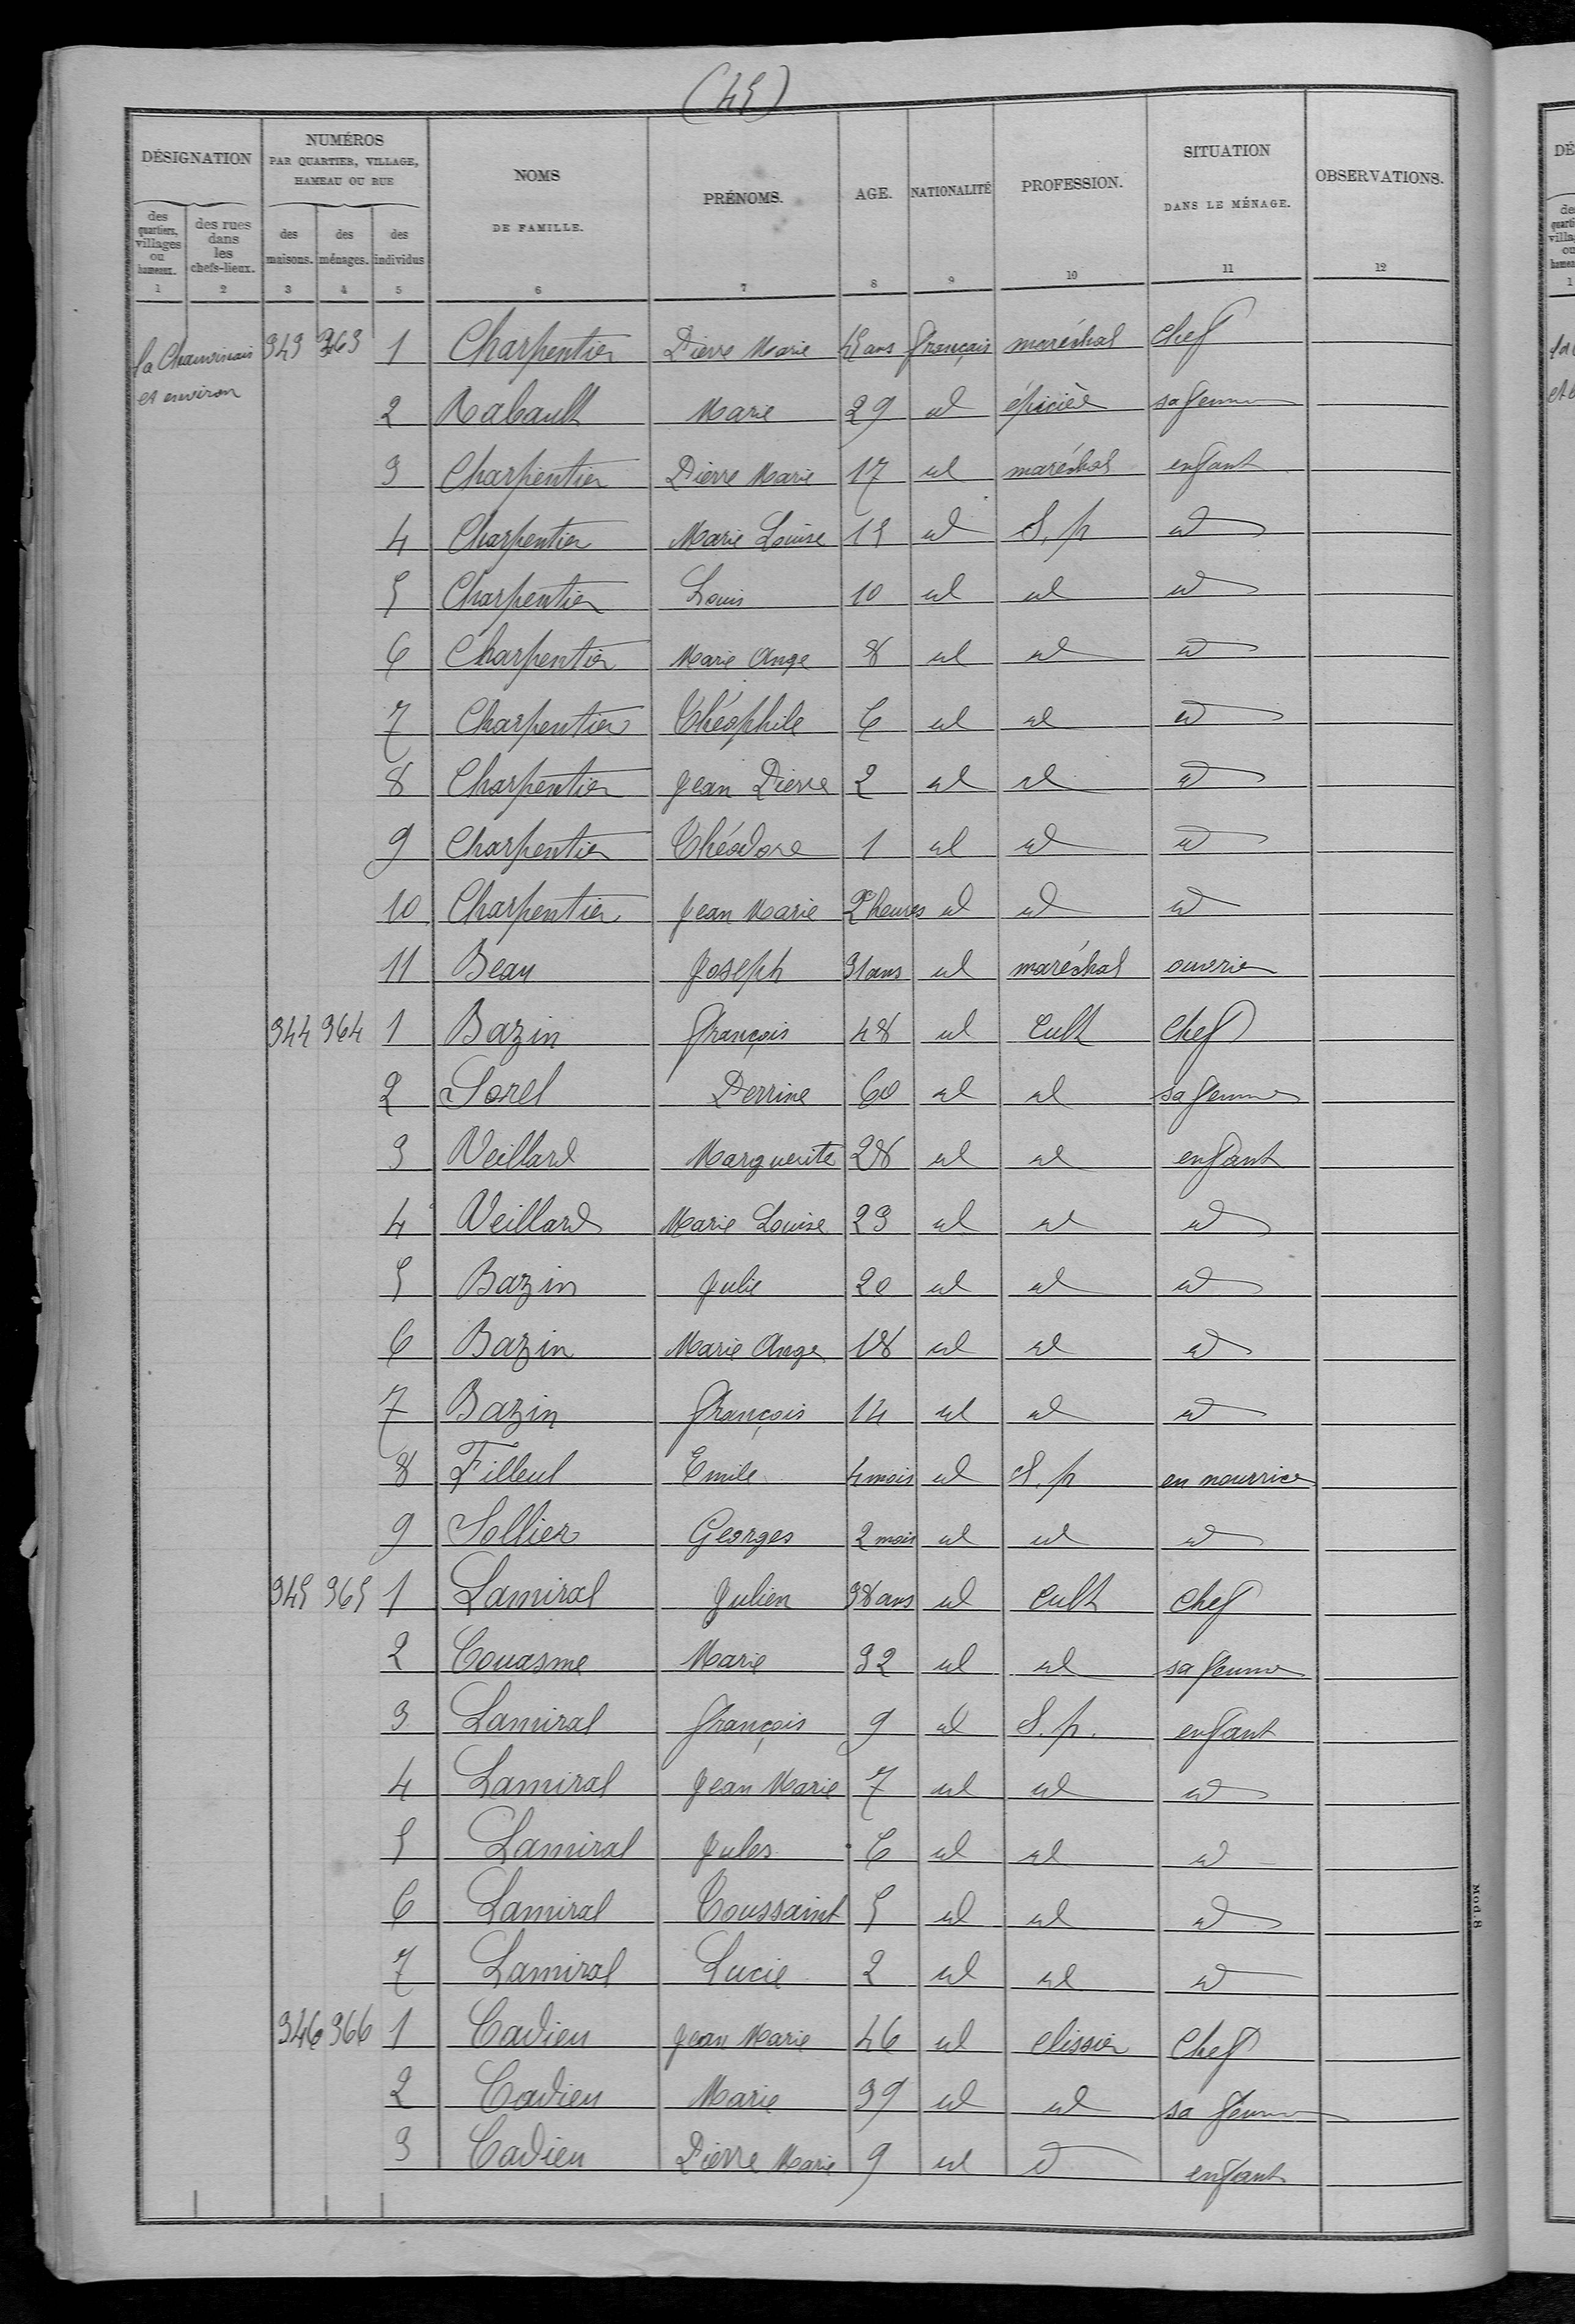 (45)
DÉSIGNATION NUMÉROS PAR QUARTIER, VILLAGE, HAMEAU OU RUE NOMS DE FAMILLE. PRÉNOMS. AGE. NATIONALITÉ PROFESSION. SITUATION DANS LE MÉNAGE. OBSERVATIONS.
des quartiers, villages ou hameaux. des rues dans les chefs-lieux. des maisons. des ménages. des individus
1 2 3 4 5 6 7 8 9 10 11 12
la Chauvinais 343 363 1 Charpentier Pierre Marie 45 ans français maréchal chef
et environ
2 Rabault Marie 29 id épicière sa femme
3 Charpentier Pierre Marie 17 id maréchal enfant
4 Charpentier Marie Louise 15 id S. p id
5 Charpentier Louis 10 id id id
6 Charpentier Marie Ange 8 id id id
7 Charpentier Théophile 6 id id id
8 Charpentier Jean Pierre 2 id id id
9 Charpentier Théodore 1 id id id
10 Charpentier Jean Marie 2 heures id id id
11 Beau Joseph 31 ans id maréchal ouvrier
344 364 1 Bazin François 48 id Cult Chef
2 Sorel Perrine 60 id id sa femme
3 Veillard Marguerite 28 id id enfant
4 Veillard Marie Louise 23 id id id
5 Bazin Julie 20 id id id
6 Bazin Marie Ange 18 id id id
7 Bazin François 14 id id id
8 Filleul Emile 4 mois id S. p en nourrice
9 Sollier Georges 2 mois id id id
345 365 1 Lamiral Julien 38 ans id Cult Chef
2 Couasme Marie 32 id id sa femme
3 Lamiral François 9 id S. p. enfant
4 Lamiral Jean Marie 7 id id id
5 Lamiral Jules 6 id id id
6 Lamiral Toussaint 5 id id id
7 Lamiral Lucie 2 id id id
346 366 1 Cadieu Jean Marie 46 id clissier Chef
2 Cadieu Marie 39 id id sa femme
3 Cadieu Pierre Marie 9 id id enfant
Mod. 8